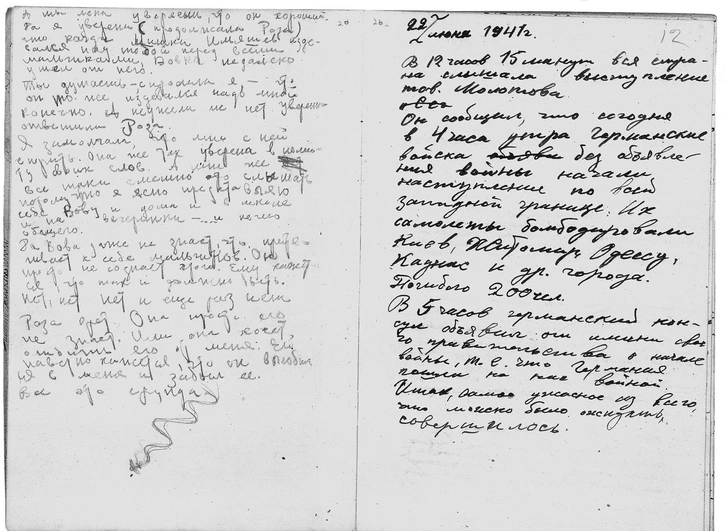 А ты Лена уверена, что он хороший.
Да я уверена (продолжала Роза)
что когда Мишка Ильяшев изде-
вался над тобой перед всеми
мальчиками, Вовка недалеко
ушел от него.
Ты думаешь – спросила я – что
он тоже издевался надо мной
конечно. а неужели же нет уверенно
ответила Роза.
Я замолчала, что мне с ней
спорить. Она же так уверена в
своих слов. А мне же
все таки смешно это слышать
потому что я ясно представляю
себе Вову и дома и в школе
и на вечеринке – ... и ничего
общего.
Да Вова даже не знает, что
к себе мальчиков. Он
просто не сознает этого. Ему кажет-
ся что так и должно быть.
Нет, нет нет и еще раз нет
Роза врет. Она просто его
не знает. Или она хочет
отбить его у меня. Ей
наверно кажется, что он влюбил-
ся в меня и забыл ее.
Все это ерунда
20 20.
22 июня 1941 г.
12
В 12 часов 15 минут вся стра-
на слышала выступление
тов. Молотова.
Он сообщил, что сегодня
в 4 часа утра германские
войска без объявле-
ния войны начали
наступление по всей
западной границе. Их
самолеты бомбардировали
Киев, Житомир, Одессу,
Каунас и др. города.
Погибло 200 чел.
В 5 часов германский кон-
сул объявил от имени свое-
го правительства о начале
войны, т. е. что Германия
пошли на нас войной.
Итак, самое ужасное из всего,
что можно было ожидать,
совершилось.